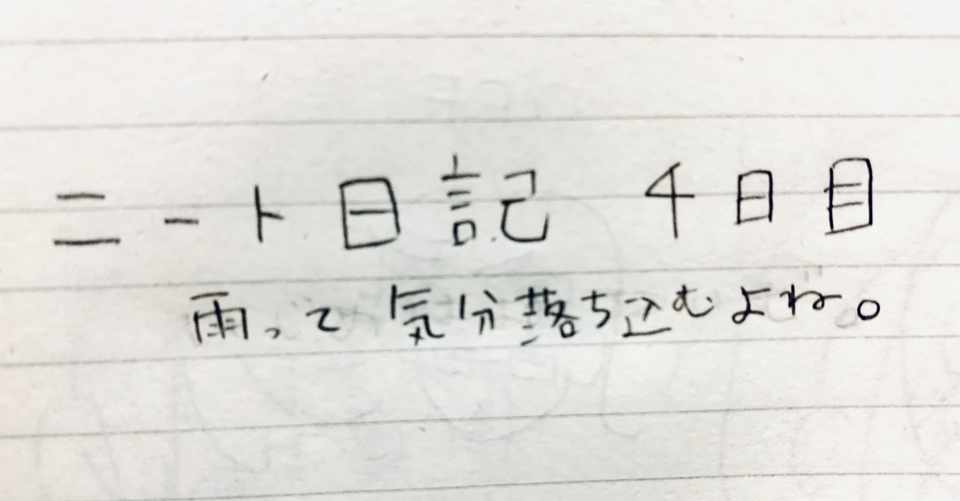 ニート日記 4日目
雨って気分落ち込むよね。